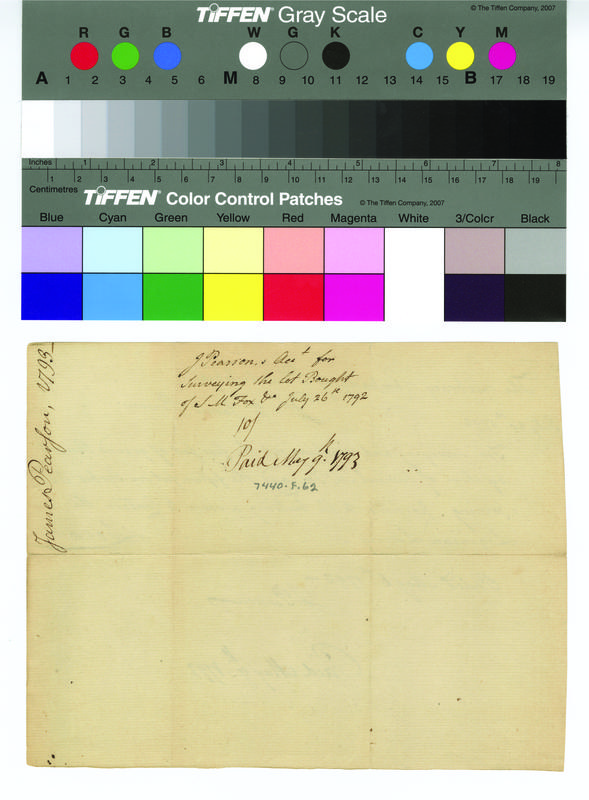 TIFFEN® Gray Scale
© The Tiffen Company, 2007
R G B W G K C Y M
A 1 2 3 4 5 6 M 8 9 10 11 12 13 14 15 B 17 18 19
Inches 1 2 3 4 5 6 7 8
Centimetres 1 2 3 4 5 6 7 8 9 10 11 12 13 14 15 16 17 18 19
TIFFEN® Color Control Patches
© The Tiffen Company, 2007
Blue Cyan Green Yellow Red Magenta White 3/Color Black
James Pearson, 1793
J Pearson,s Acct for
Surveying the Lot Bought
of S M Fox &a July 26th 1792
10/
Paid May 9th 1793
7440.F.62